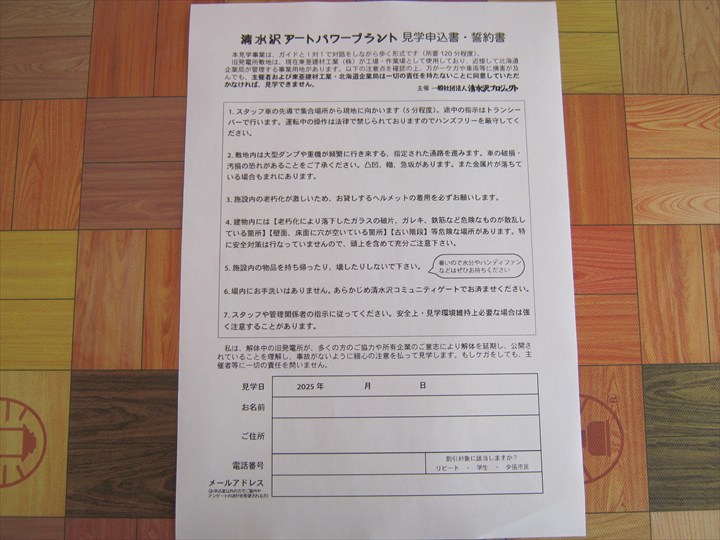 清水沢アートパワープラント 見学申込書・誓約書
本見学事業は、ガイドと1対1で対話をしながら歩く形式です（所要120分程度）。
旧発電所敷地は、現在東亜建材工業（株）が工場・作業場として使用しており、近接して北海道
企業局が管理する事業用地があります。以下の注意点を確認の上、万が一ケガや車両等に損害が及
んでも、主催者および東亜建材工業・北海道企業局は一切の責任を持たないことに同意していただ
かなければ、見学できません。
主催 一般社団法人 清水沢プロジェクト
1. スタッフ車の先導で集合場所から現地に向かいます（5分程度）。途中の指示はトランシー
バーで行います。運転中の操作は法律で禁じられておりますのでハンズフリーを厳守してく
ださい。
2. 敷地内は大型ダンプや重機が頻繁に行き来する、指定された通路を進みます。車の破損・
汚損の恐れがあることをご了承ください。凸凹、轍、急坂があります。また金属片が落ちて
いる場合もまれにあります。
3. 施設内の老朽化が激しいため、お貸しするヘルメットの着用を必ずお願いします。
4. 建物内には【老朽化により落下したガラスの破片、ガレキ、鉄筋など危険なものが散乱し
ている箇所】【壁面、床面に穴が空いている箇所】【古い階段】等危険な場所があります。特
に安全対策は行なっていませんので、頭上を含めて充分ご注意下さい。
5. 施設内の物品を持ち帰ったり、壊したりしないで下さい。
暑いので水分やハンディファン
などはぜひお持ちください
6. 場内にお手洗いはありません。あらかじめ清水沢コミュニティゲートでお済ませください。
7. スタッフや管理関係者の指示に従ってください。安全上・見学環境維持上必要な場合は強
く注意することがあります。
私は、解体中の旧発電所が、多くの方のご協力や所有企業のご意志により解体を延期し、公開さ
れていることを理解し、事故がないように細心の注意を払って見学します。もしケガをしても、主
催者等に一切の責任を問いません。
見学日 2025年 月 日
お名前
ご住所
電話番号
割引対象に該当しますか？
リピート ・ 学生 ・ 夕張市民
メールアドレス